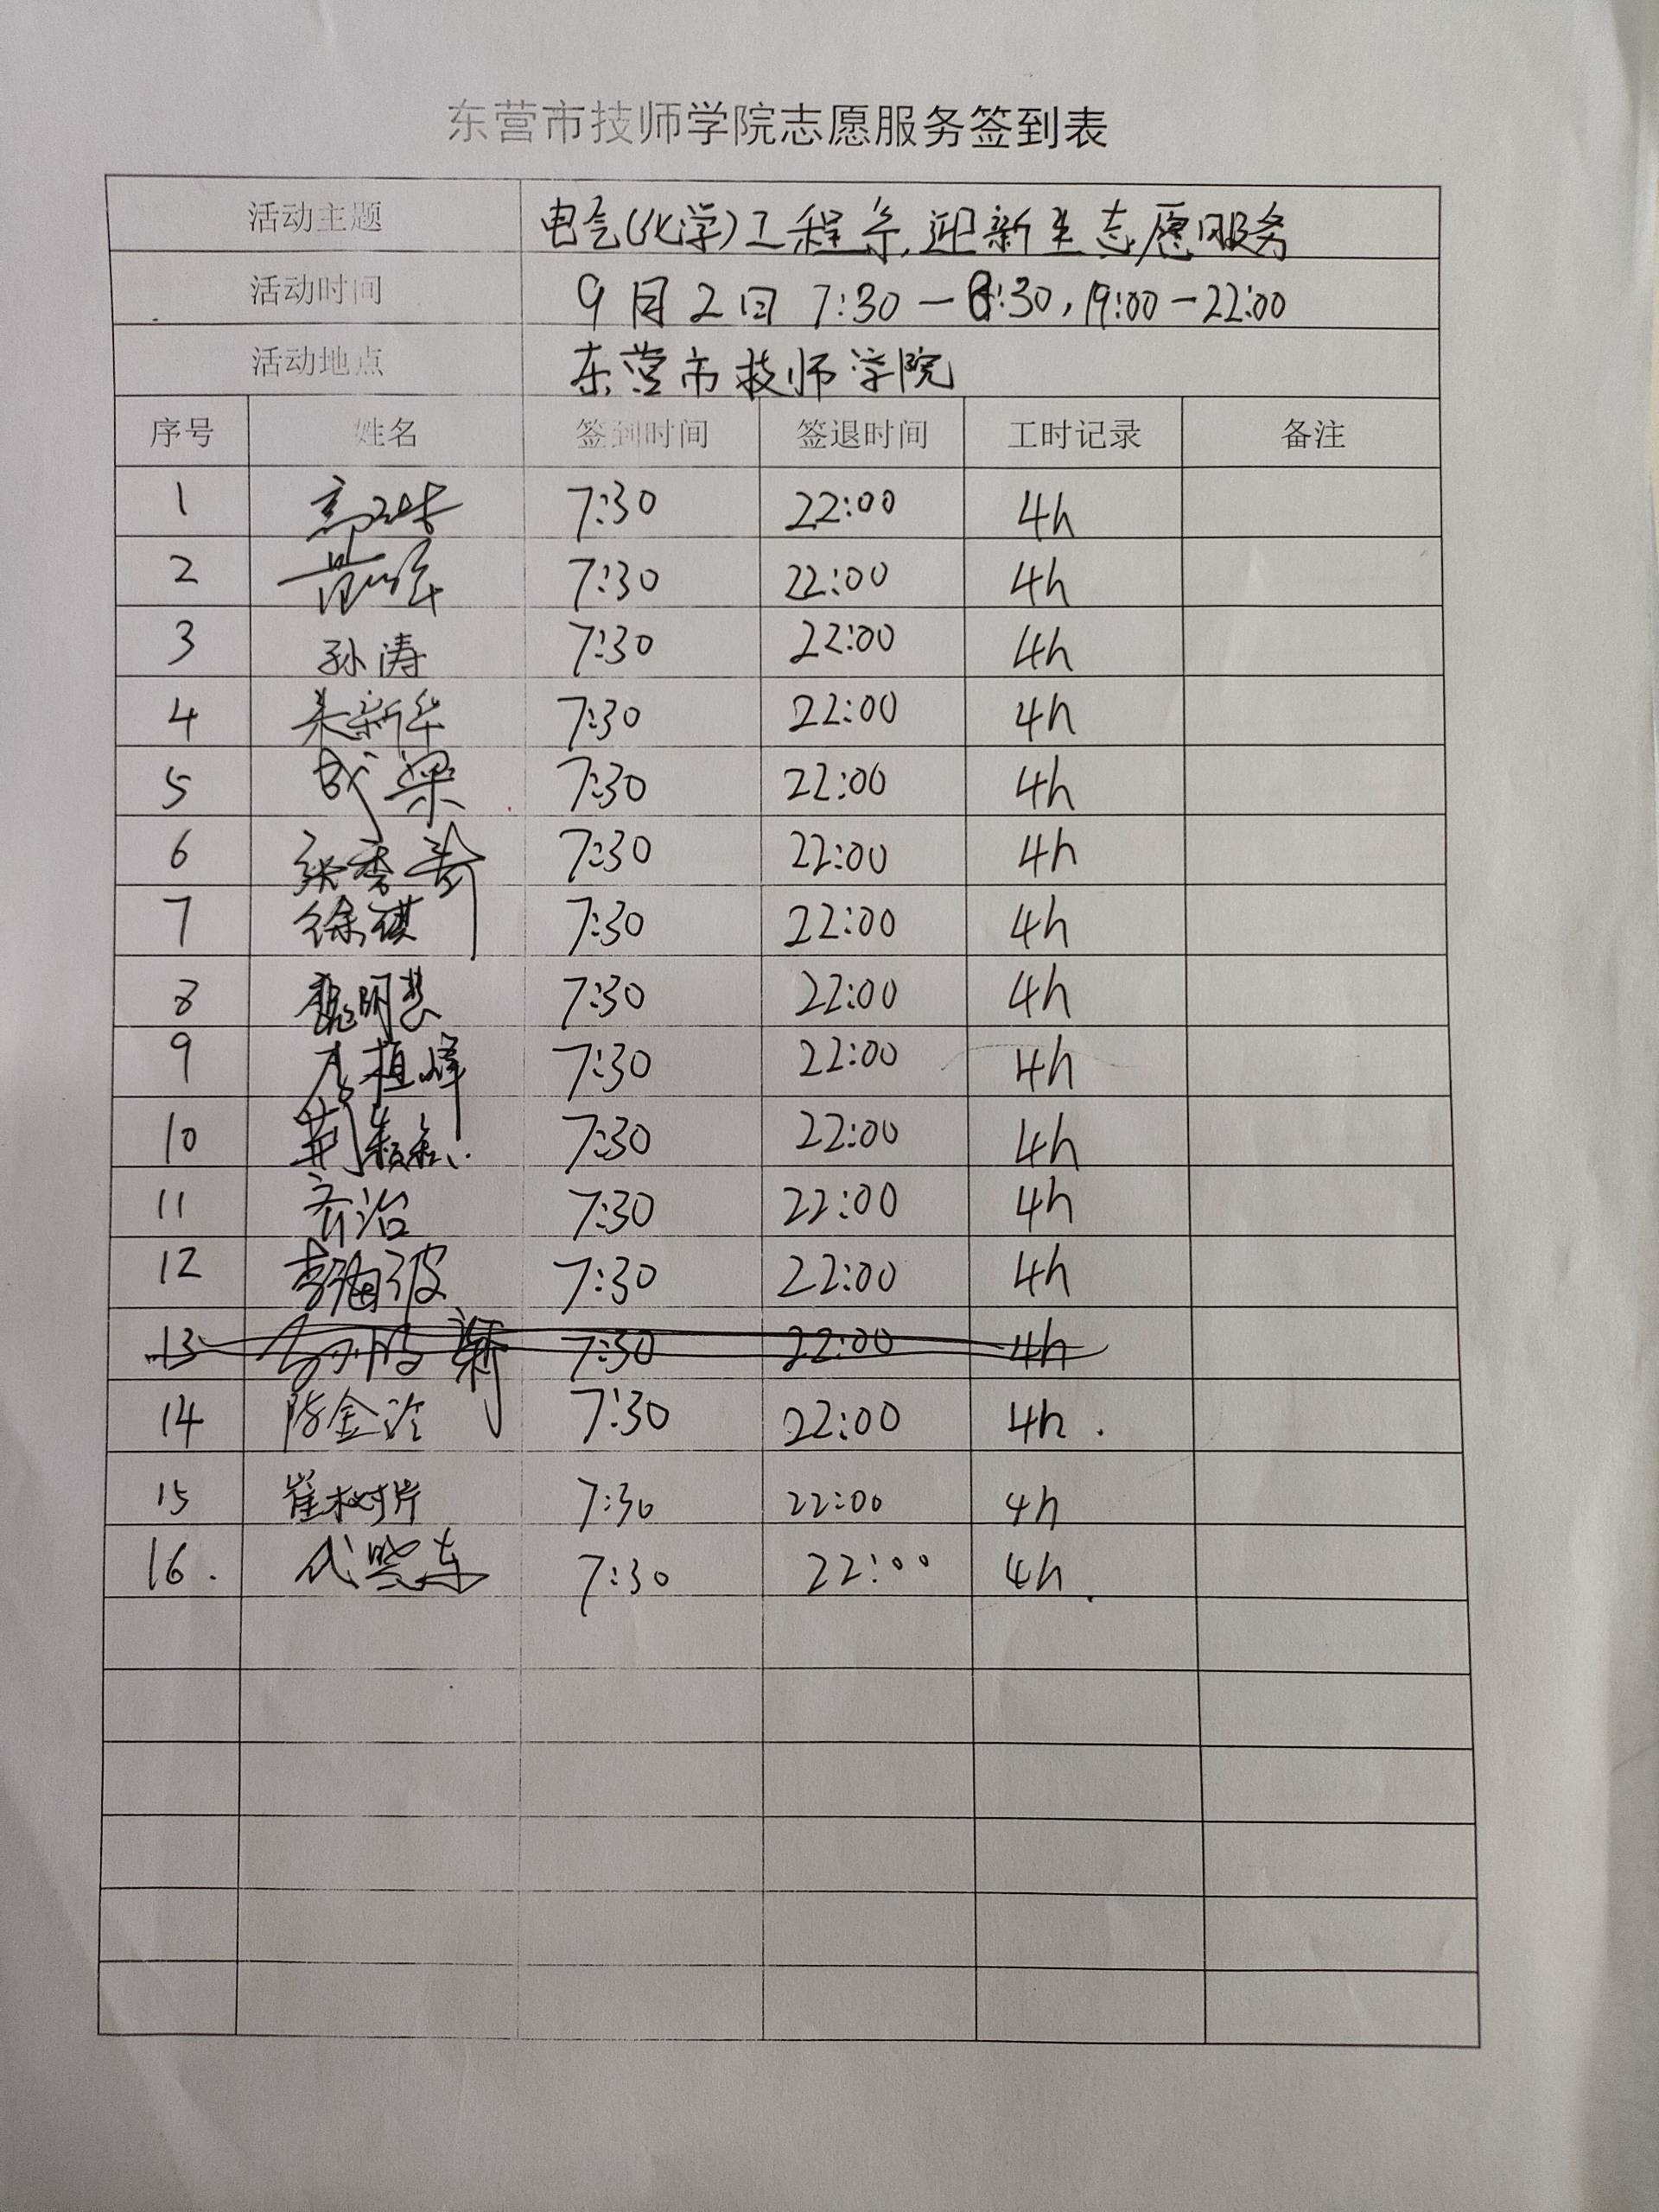 东营市技师学院志愿服务签到表
活动主题 电气(化学)工程系,迎新生志愿服务
活动时间 9月2日 7:30-8:30,19:00-22:00
活动地点 东营市技师学院
序号 姓名 签到时间 签退时间 工时记录 备注
1 7:30 22:00 4h
2 7:30 22:00 4h
3 孙涛 7:30 22:00 4h
4 朱新华 7:30 22:00 4h
5 成梁 7:30 22:00 4h
6 7:30 22:00 4h
7 徐祺 7:30 22:00 4h
8 魏明慧 7:30 22:00 4h
9 7:30 22:00 4h
10 7:30 22:00 4h
11 乔治 7:30 22:00 4h
12 李海波 7:30 22:00 4h
13 7:30 22:00 4h
14 陈金玲 7:30 22:00 4h.
15 7:30 22:00 4h
16. 7:30 22:00 4h